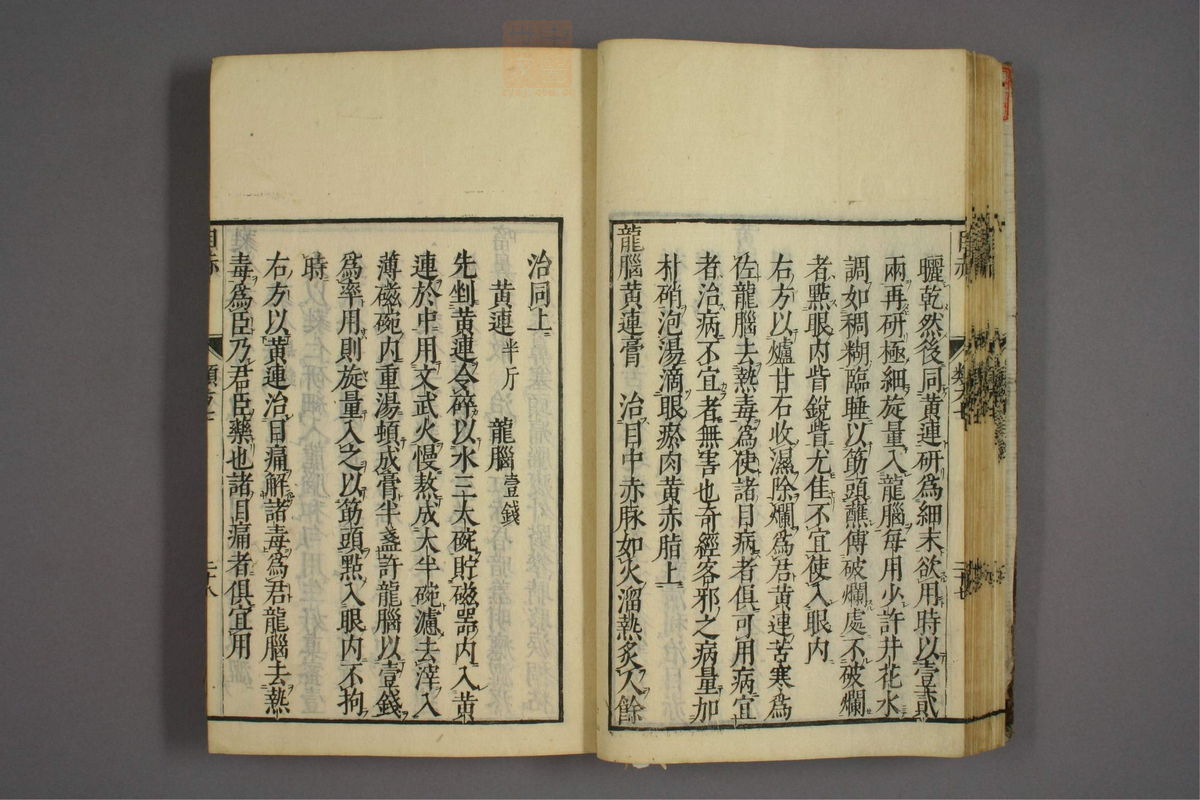 曬乾然後同黄連研爲細末欲用時以壹貳
兩再研極細旋量入龍腦每用少許井花水
調如稠糊臨睡以筯頭蘸傅破爛處不破爛
者㸃眼内眥銳眥尤佳不宜使入眼内
右方以爐甘石收濕除爛爲君黄連苦寒爲
佐龍腦去熱毒爲使諸目病者俱可用病宜
者治病不宜者無害也奇經客邪之病量加
朴硝泡湯滴眼瘀肉黄赤脂上
龍腦黄連膏　治目中赤脉如火溜熱炙人餘
治同上
黄連半斤　龍腦壹錢
先剉黄連令碎以水三大碗貯磁器内入黄
連於中用文武火慢熬成大半碗濾去滓入
薄磁碗内重湯頓成膏半盞許龍腦以壹錢
爲率用則旋量入之以筯頭㸃入眼内不拘
時
右方以黄連治目痛解諸毒爲君龍腦去熱
毒爲臣乃君臣藥也諸目痛者俱宜用
目赤